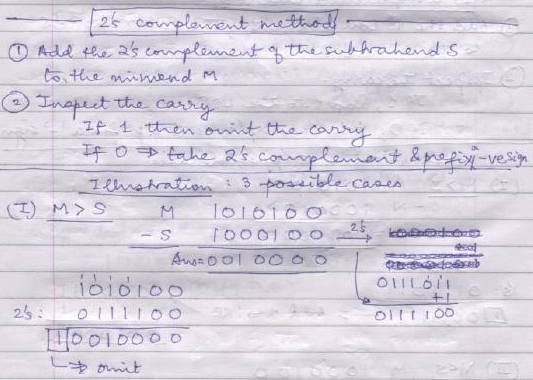 2's complement method
① Add the 2's complement of the subtrahend S
to the minuend M
② Inspect the carry
If 1 then omit the carry
If 0 ⇒ take 2's complement & prefix a -ve sign
Illustration : 3 possible cases
(I) M > S M 1010100
- S 1000100 2's →
Ans = 0010000
0111011
+1
0111100
1010100
2's : 0111100
1 0010000
↳ omit